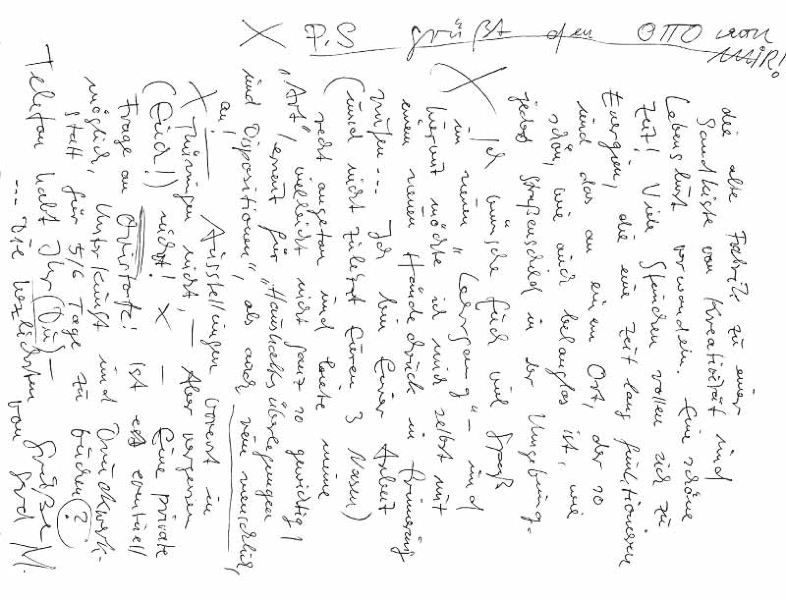 die alte Fabrik zu einer
Sandkiste von Kreativität und
Lebenslust verwandeln. Eine schöne
Zeit! Viele Stunden wollen sich zu
Energien, die eine Zeit lang funktionieren
und das an einem Ort, der so
schön, wie auch belanglos ist, wie
jedes Straßenschild in der Umgebung.
X Ich wünsche Euch viel Spaß
im neuen "Lehrgang" – und
hiermit möchte ich mich selbst mit
einem neuen Händedruck in Erinnerung
rufen... Ich bin Eurer Arbeit
(und nicht zuletzt Euren 3 Nasen)
recht angetan und biete meine
"Art", vielleicht nicht ganz so gewichtig,
erneut für "Haushaltsüberlegungen
und Dispositionen", als auch rein menschlich,
an! — Ausstellungen vorerst in
X Thüringen nicht, – Aber vergessen
(Euch!) nicht! X — Eine private
Frage an ist es eventuell
möglich, Unterkunft und Druckwerk-
statt für 5/6 Tage zu buchen (?)
Telefon habt Ihr (Du) – Grüße M.
... Die herzlichsten von
X P.S grüßt den OTTO von
MIR!